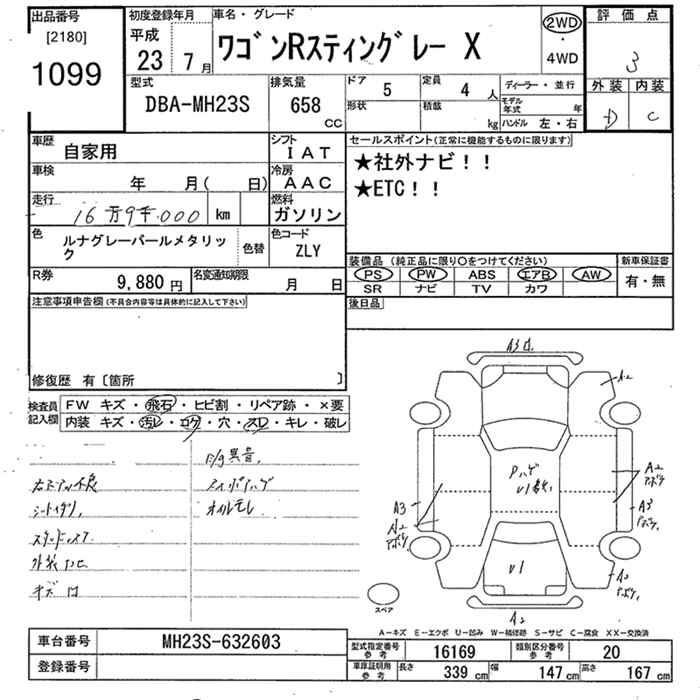 出品番号
[2180]
1099
初度登録年月
平成
23 7月
車名・グレード
ワゴンRスティングレー X
2WD
・
4WD
評価点
3
外装 内装
D C
型式
DBA-MH23S
排気量
658
CC
ドア
5
定員
4 人
形状
積載
kg
ディーラー・並行
モデル年式
年
ハンドル 左・右
車歴
自家用
シフト
IAT
車検
年 月( 日)
冷房
AAC
走行
16万9千000 km
燃料
ガソリン
色
ルナグレーパールメタリック
色替
色コード
ZLY
R券
9,880 円
名変通知期限
月 日
セールスポイント(正常に機能するものに限ります)
★社外ナビ!!
★ETC!!
装備品 (純正品に限り○をつけてください)
PS PW ABS エアB AW
SR ナビ TV カワ
新車保証書
有・無
後日品
注意事項申告欄(不具合内容等は具体的に記入して下さい)
修復歴 有〔箇所 〕
検査員記入欄
FW キズ・飛石・ヒビ割・リペア跡・×要
内装 キズ・汚レ・コゲ・穴・スレ・キレ・破レ
E/g異音、
オイルモレ
A2
A2
A3
A3
A2
A2
U1
スペア
A-キズ E-エクボ U-凹み W-補修跡 S-サビ C-腐食 XX-交換済
車台番号
MH23S-632603
登録番号
型式指定番号
参考
16169
類別区分番号
参考
20
車庫証明用
参考
長さ
339 cm
幅
147 cm
高さ
167 cm